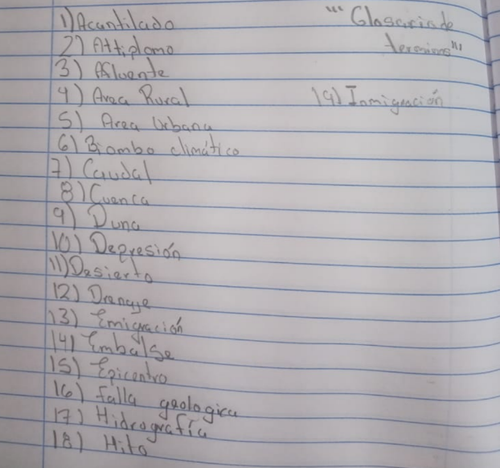 "" Glosario de
termino ""
1) Acantilado
2) Altiplamo
3) Afluente
4) Area Rural
5) Area Urbana
6) Biombo climático
7) Caudal
8) Cuenca
9) Duna
10) Depresión
11) Desierto
12) Drenaje
13) Emigración
14) Embalse
15) Epicentro
16) falla geologica
17) Hidrografía
18) Hito
19) Inmigración